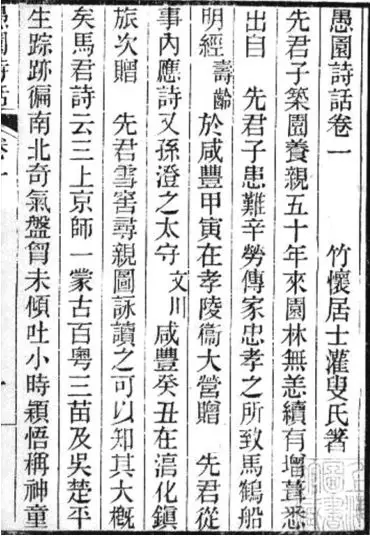 愚園詩話卷一
竹懷居士灌叟氏著
先君子築園養親五十年來園林無恙續有增葺悉
出自　先君子患難辛勞傳家忠孝之所致馬鶴船
明經壽齡於咸豐甲寅在孝陵衞大營贈　先君從
事內應詩又孫澄之太守文川咸豐癸丑在淯化鎭
旅次贈　先君雪窖尋親圖詠讀之可以知其大槪
矣馬君詩云三上京師一蒙古百粤三苗及吳楚平
生踪跡徧南北奇氣盤胷未傾吐小時穎悟稱神童
愚園詩話